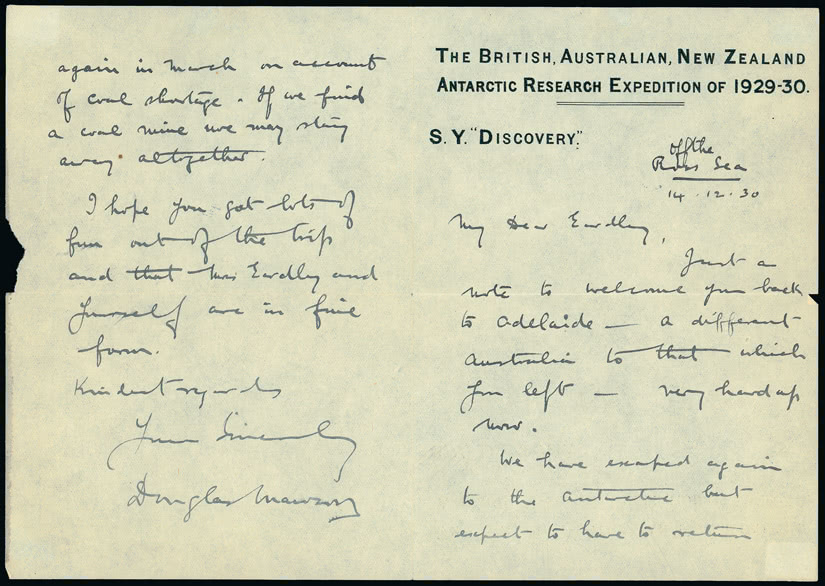 THE BRITISH, AUSTRALIAN, NEW ZEALAND
ANTARCTIC RESEARCH EXPEDITION OF 1929-30.
S. Y. "DISCOVERY."
off the
Ross Sea
14 . 12 . 30
My Dear Eardley,
Just a
note to welcome you back
to Adelaide — a different
Australia to that which
you left — very hard up
now.
We have escaped again
to the Antarctic but
expect to have to return
again in March on account
of coal shortage. If we find
a coal mine we may stay
away altogether.
I hope you got lots of
fun out of the trip
and that Mrs Eardley and
yourself are in fine
form.
Kindest regards
Yours Sincerely
Douglas Mawson